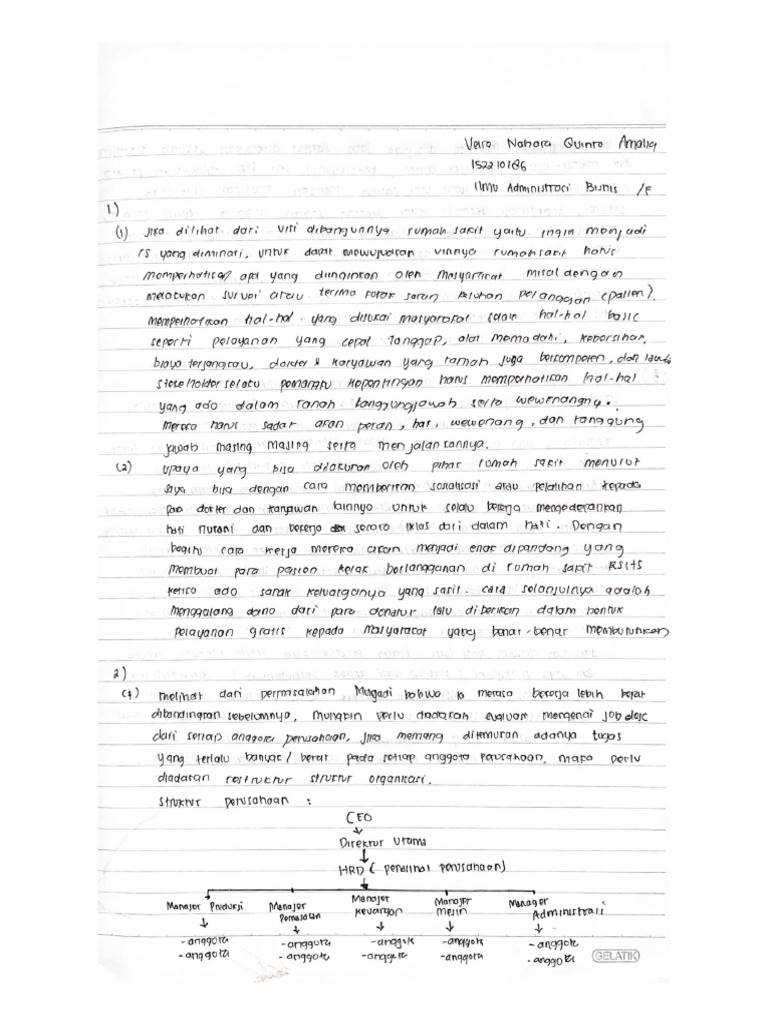 Veira Nahara Quinta Amalia
152210186
Ilmu Administrasi Bisnis /F
1)
(1) Jika dilihat dari visi dibangunnya rumah sakit yaitu ingin menjadi
rs yang diminati, untuk dapat mewujudkan visinya rumah sakit harus
memperhatikan apa yang diinginkan oleh masyarakat misal dengan
melakukan survei atau terima kotak saran keluhan pelanggan (pasien).
memperhatikan hal-hal yang disukai masyarakat selain hal-hal basic
seperti pelayanan yang cepat tanggap, alat memadahi, kebersihan,
biaya terjangkau, dokter & karyawan yang ramah juga berkompeten, dan
stakeholder selaku pemangku kepentingan harus memperhatikan hal-hal
yang ada dalam ranah tanggungjawab serta wewenangny.
mereka harus sadar akan peran, hak, wewenang, dan tanggung
jawab masing masing serta menjalankannya.
(2) upaya yang bisa dilakukan oleh pihak rumah sakit menurut
saya bisa dengan cara memberikan sosialisasi atau pelatihan kepada
para dokter dan karyawan lainnya untuk selalu bekerja mengedepankan
hati nurani dan bekerja secara iklas dari dalam hati. Dengan
begitu cara kerja mereka akan menjadi enak dipandang yang
membuat para pasien kelak berlangganan di rumah sakit RSITS
ketika ada sanak keluarganya yang sakit. cara selanjutnya adalah
menggalang dana dari para donatur lalu diberikan dalam bentuk
pelayanan gratis kepada masyarakat yang benar-benar membutuhkan
2)
(1) melihat dari permasalahan Mugadi bahwa ia merasa bekerja lebih berat
dibandingkan sebelumnya, mungkin perlu diadakan evaluasi mengenai jobdesc
dari setiap anggota perusahaan, jika memang ditemukan adanya tugas
yang terlalu banyak/ berat pada setiap anggota perusahaan, maka perlu
diadakan restruktur struktur organisasi.
struktur perusahaan :
CEO
Direktur Utama
HRD ( penasihat perusahaan)
Manajer Produksi Manajer Pemasaran Manajer keuangan Manajer mesin Manager Administrasi
-anggota -anggota -anggota -anggota -anggota
-anggota -anggota -anggota -anggota -anggota
GELATIK